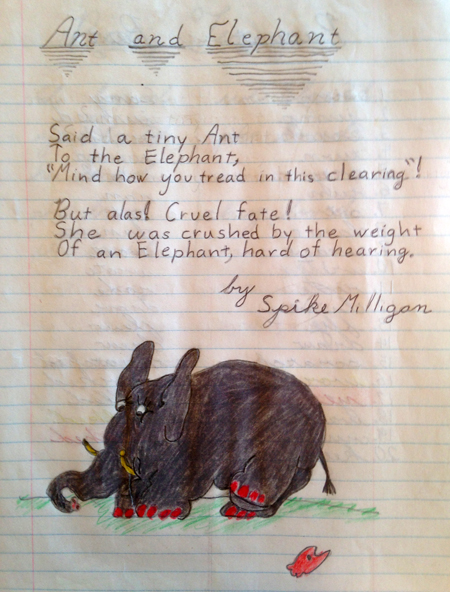 Ant and Elephant
Said a tiny Ant
To the Elephant,
"Mind how you tread in this clearing"!
But alas! Cruel fate!
She was crushed by the weight
Of an Elephant, hard of hearing.
by
Spike Milligan